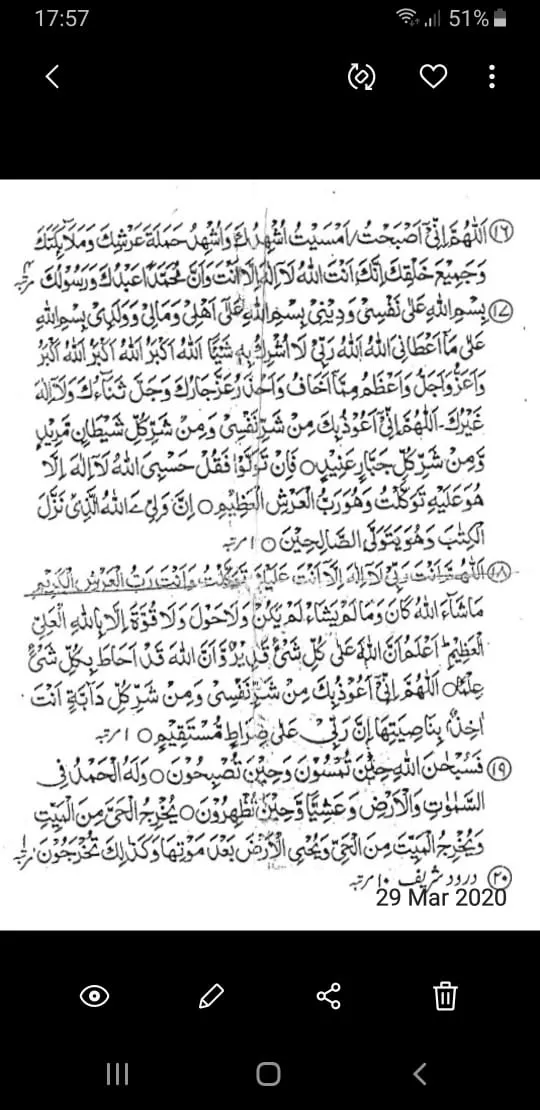 17:57
51%
⑯ اَللّٰهُمَّ اِنِّیْٓ اَصْبَحْتُ/اَمْسَیْتُ اُشْهِدُكَ وَاُشْهِدُ حَمَلَةَ عَرْشِكَ وَمَلٰٓئِكَتَكَ
وَجَمِیْعَ خَلْقِكَ اِنَّكَ اَنْتَ اللهُ لَآ اِلٰهَ اِلَّا اَنْتَ وَاَنَّ مُحَمَّدًا عَبْدُكَ وَرَسُوْلُكَ
⑰ بِسْمِ اللهِ عَلٰی نَفْسِیْ وَدِیْنِیْ بِسْمِ اللهِ عَلٰٓی اَهْلِیْ وَمَالِیْ وَوَلَدِیْ بِسْمِ اللهِ
عَلٰی مَآ اَعْطَانِیَ اللهُ اَللهُ رَبِّیْ لَآ اُشْرِكُ بِهٖ شَیْئًا اَللهُ اَكْبَرُ اَللهُ اَكْبَرُ اَللهُ اَكْبَرُ
وَاَعَزُّ وَاَجَلُّ وَاَعْظَمُ مِمَّآ اَخَافُ وَاَحْذَرُ عَزَّجَارُكَ وَجَلَّ ثَنَآءُكَ وَلَآ اِلٰهَ
غَیْرُكَ۔ اَللّٰهُمَّ اِنِّیْٓ اَعُوْذُبِكَ مِنْ شَرِّ نَفْسِیْ وَمِنْ شَرِّ كُلِّ شَیْطَانٍ مَّرِیْدٍ
وَّمِنْ شَرِّ كُلِّ جَبَّارٍ عَنِیْدٍ○ فَاِنْ تَوَلَّوْا فَقُلْ حَسْبِیَ اللهُ لَآ اِلٰهَ اِلَّا
هُوَ عَلَیْهِ تَوَكَّلْتُ وَهُوَ رَبُّ الْعَرْشِ الْعَظِیْمِ○ اِنَّ وَلِیِّ ےَ اللهُ الَّذِیْ نَزَّلَ
الْكِتٰبَ وَهُوَ یَتَوَلَّی الصَّالِحِیْنَ○ ۱ مرتبہ
⑱ اَللّٰهُمَّ اَنْتَ رَبِّیْ لَآ اِلٰهَ اِلَّا اَنْتَ عَلَیْكَ تَوَكَّلْتُ وَاَنْتَ رَبُّ الْعَرْشِ الْكَرِیْمِ
مَاشَآءَ اللهُ كَانَ وَمَا لَمْ یَشَاءْ لَمْ یَكُنْ وَلَا حَوْلَ وَلَا قُوَّةَ اِلَّا بِاللهِ الْعَلِیِّ
الْعَظِیْمِ اَعْلَمُ اَنَّ اللهَ عَلٰی كُلِّ شَیْءٍ قَدِیْرٌ وَّاَنَّ اللهَ قَدْ اَحَاطَ بِكُلِّ شَیْءٍ
عِلْمًا○ اَللّٰهُمَّ اِنِّیْٓ اَعُوْذُبِكَ مِنْ شَرِّ نَفْسِیْ وَمِنْ شَرِّ كُلِّ دَآبَّةٍ اَنْتَ
اٰخِذٌۢ بِنَاصِیَتِهَا اِنَّ رَبِّیْ عَلٰی صِرَاطٍ مُّسْتَقِیْمٍ○ ۱ مرتبہ
⑲ فَسُبْحٰنَ اللهِ حِیْنَ تُمْسُوْنَ وَحِیْنَ تُصْبِحُوْنَ○ وَلَهُ الْحَمْدُ فِی
السَّمٰوٰتِ وَالْاَرْضِ وَعَشِیًّا وَّحِیْنَ تُظْهِرُوْنَ○ یُخْرِجُ الْحَیَّ مِنَ الْمَیِّتِ
وَیُخْرِجُ الْمَیِّتَ مِنَ الْحَیِّ وَیُحْیِ الْاَرْضَ بَعْدَ مَوْتِهَا وَكَذٰلِكَ تُخْرَجُوْنَ
⑳ درود شریف ۱۰ مرتبہ
29 Mar 2020